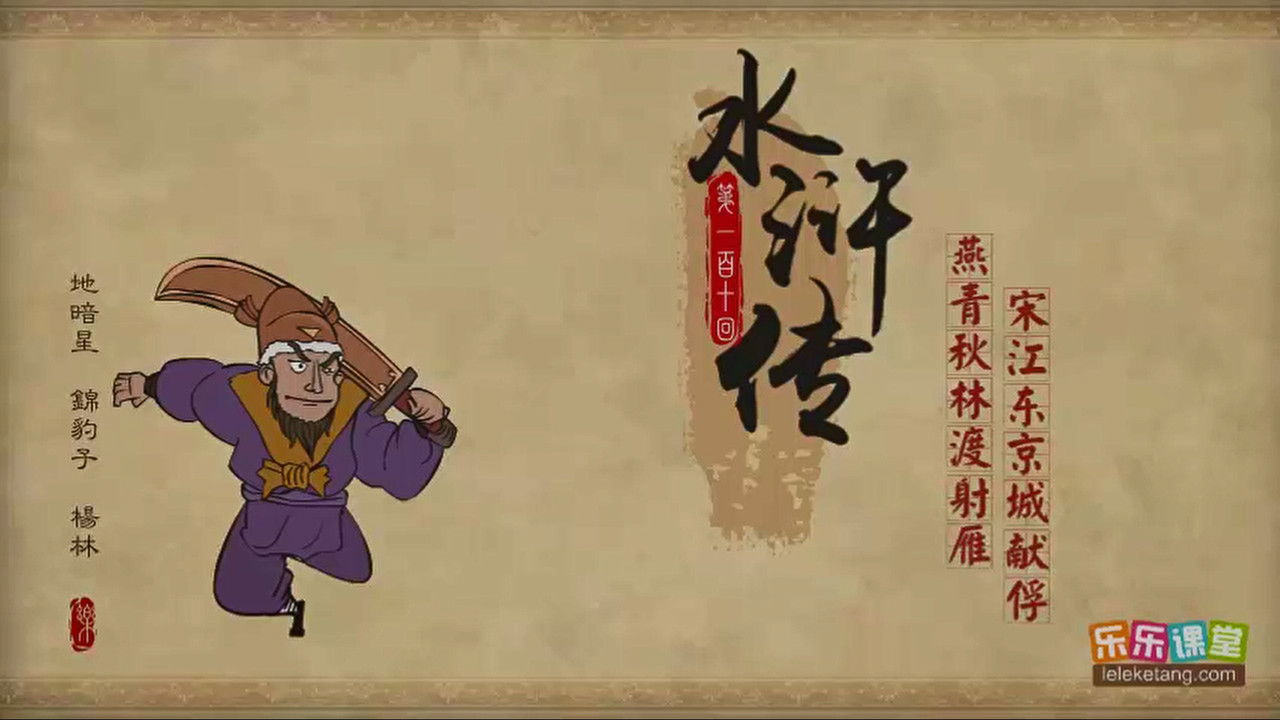 水浒传
第一百十回
燕青秋林渡射雁
宋江东京城献俘
地暗星 錦豹子 楊林
樂
乐乐课堂
leleketang.com